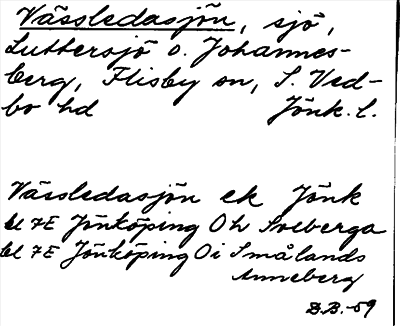 Vässledasjön, sjö,
Luttersjö o. Johannes-
berg, Flisby sn, S. Ved-
bo hd Jönk. l.
Vässledasjön ek Jönk
bl 7E Jönköping Oh Solberga
bl 7E Jönköping Oi Smålands
Anneberg
B.B. -59